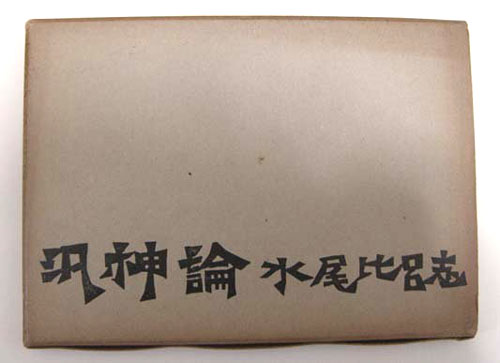 汎神論 水尾比呂志